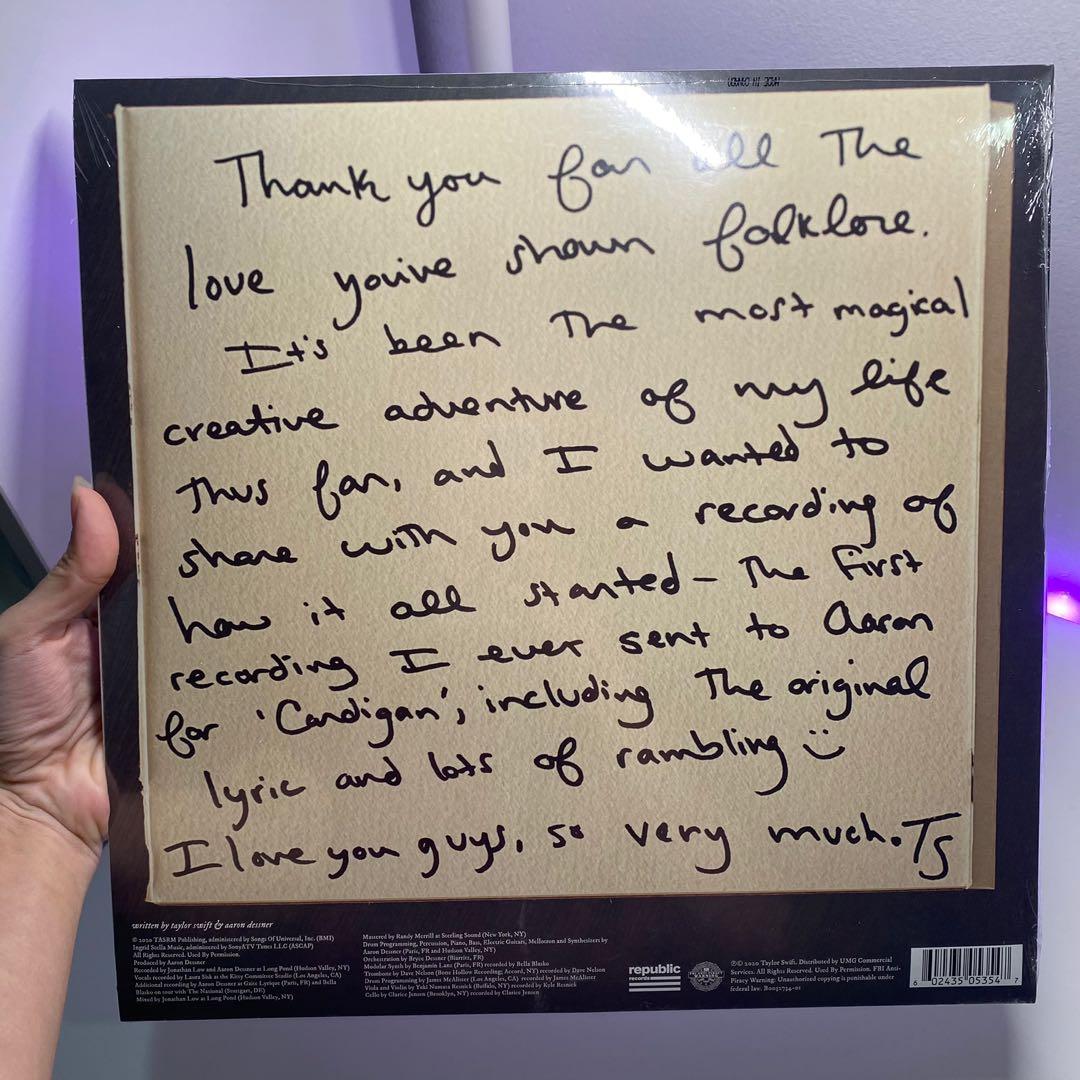 MADE IN CANADA
Thank you for all The
love you've shown folklore.
It's been The most magical
creative adventure of my life
thus far, and I wanted to
share with you a recording of
how it all started - The first
recording I ever sent to Aaron
for 'Cardigan', including The original
lyric and lots of rambling :)
I love you guys, so very much. TS
written by taylor swift & aaron dessner
© 2020 TASRM Publishing, administered by Songs Of Universal, Inc. (BMI)
Ingrid Stella Music, administered by Sony/ATV Tunes LLC (ASCAP)
All Rights Reserved. Used By Permission.
Produced by Aaron Dessner
Recorded by Jonathan Low and Aaron Dessner at Long Pond (Hudson Valley, NY)
Vocals recorded by Laura Sisk at the Kitty Committee Studio (Los Angeles, CA)
Additional recording by Aaron Dessner at Gaite Lyrique (Paris, FR) and Bella
Blasko on tour with The National (Stuttgart, DE)
Mixed by Jonathan Low at Long Pond (Hudson Valley, NY)
Mastered by Randy Merrill at Sterling Sound (New York, NY)
Drum Programming, Percussion, Piano, Bass, Electric Guitars, Mellotron and Synthesizers by
Aaron Dessner (Paris, FR and Hudson Valley, NY)
Orchestration by Bryce Dessner (Biarritz, FR)
Modular Synth by Benjamin Lanz (Paris, FR) recorded by Bella Blasko
Trombone by Dave Nelson (Bone Hollow Recording; Accord, NY) recorded by Dave Nelson
Drum Programming by James McAlister (Los Angeles, CA) recorded by James McAlister
Viola and Violin by Yuki Numata Resnick (Buffalo, NY) recorded by Kyle Resnick
Cello by Clarice Jensen (Brooklyn, NY) recorded by Clarice Jensen
republic
records
℗© 2020 Taylor Swift. Distributed by UMG Commercial
Services. All Rights Reserved. Used By Permission. FBI Anti-
Piracy Warning: Unauthorized copying is punishable under
federal law. B0032734-01
6 02435 05354 7